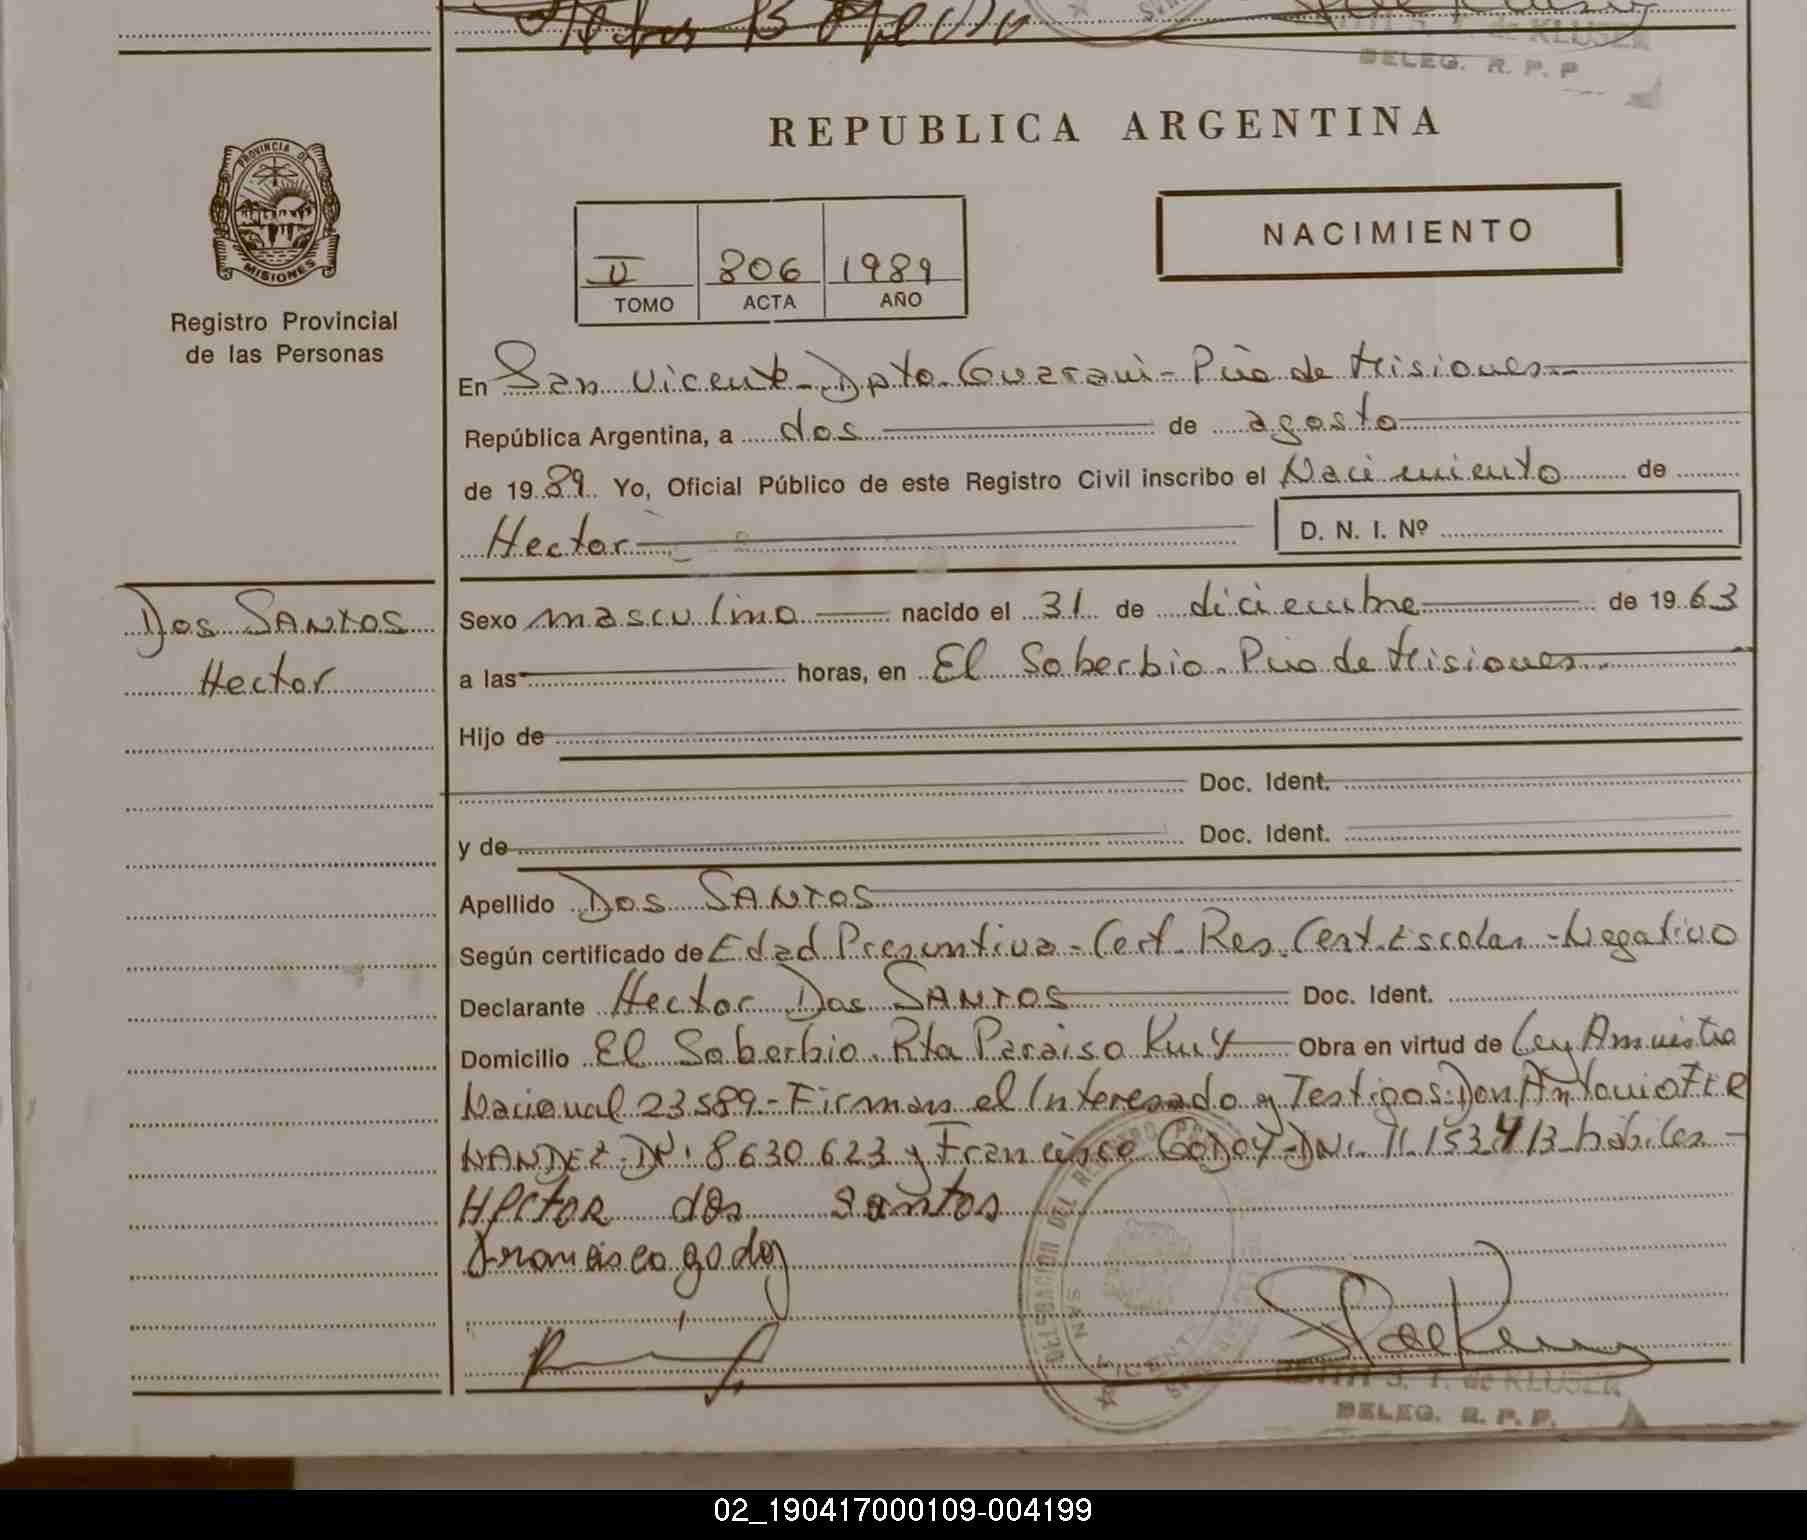 DELEG. R. P. P.
REPUBLICA ARGENTINA
PROVINCIA DE
MISIONES
Registro Provincial
de las Personas
II 806 1989
TOMO ACTA AÑO
NACIMIENTO
En San Vicente - Dpto. Guarani - Pcia de Misiones
República Argentina, a dos de agosto
de 1989. Yo, Oficial Público de este Registro Civil inscribo el Nacimiento de
Hector D. N. I. Nº
Dos SANTOS
Hector
Sexo masculino nacido el 31 de diciembre de 1963
a las horas, en El Soberbio. Pcia de Misiones
Hijo de
Doc. Ident.
y de Doc. Ident.
Apellido Dos SANTOS
Según certificado de Edad Presuntiva - Cert. Res. Cert. Escolar - Negativo
Declarante Hector Dos SANTOS Doc. Ident.
Domicilio El Soberbio. Rta Paraiso Km Obra en virtud de Ley Amnistia
Nacional 23.589 - Firman el Interesado y Testigos: Don Antonio FER
NANDEZ - DNI 8630.623 y Francisco GODOY - DNI. 11.153.413 - habiles -
Hector dos santos
Francisco godoy
DELEGACION DEL REGISTRO
SAN VICENTE
S. T. de KLUSER
DELEG. R. P. P.
02_190417000109-004199